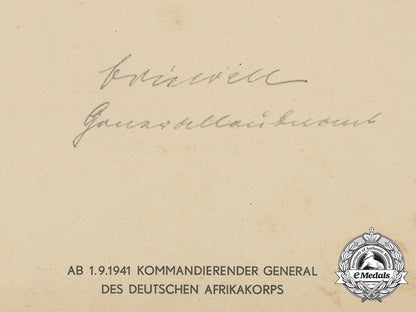 Crüwell
Generalleutnant
AB 1.9.1941 KOMMANDIERENDER GENERAL
DES DEUTSCHEN AFRIKAKORPS
eMedals